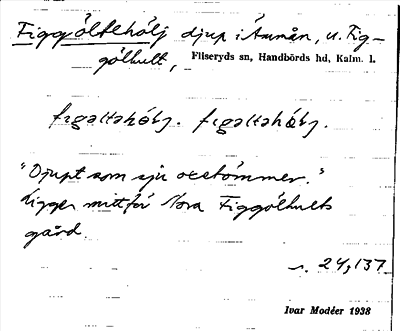 Figgöltehölj djup i Åmmån, u. Fig-
gölhult, Fliseryds sn, Handbörds hd, Kalm. l.
figəltəhöḷj. figəltəhöḷj.
"Djupt som sju oxetömmer."
Ligger mittför Norra Figgölhults
gård.
s. 24, 137
Ivar Modéer 1938